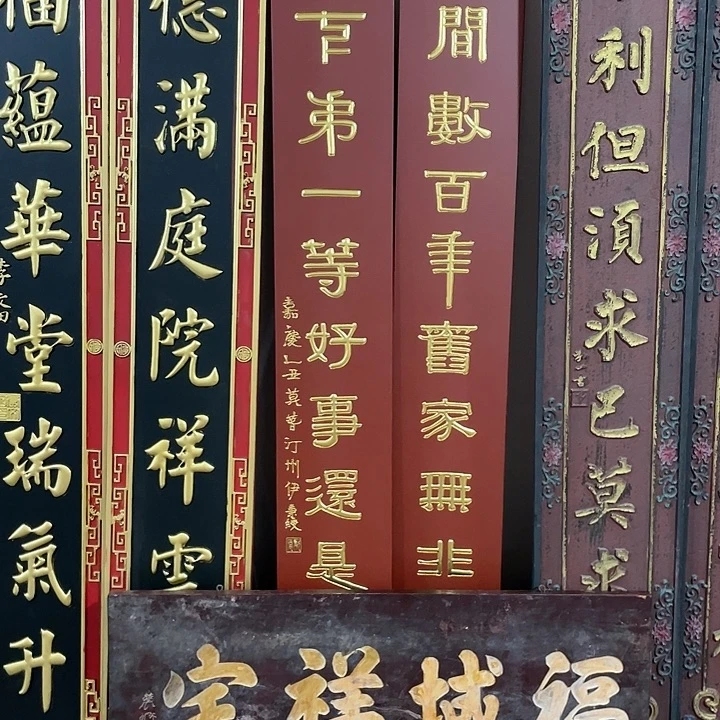 利但須求己莫求
間數百年舊家無非
下弟一等好事還是
嘉慶乙丑莫春汀州伊秉綬
德滿庭院祥雲
福蘊華堂瑞氣升
福域祥